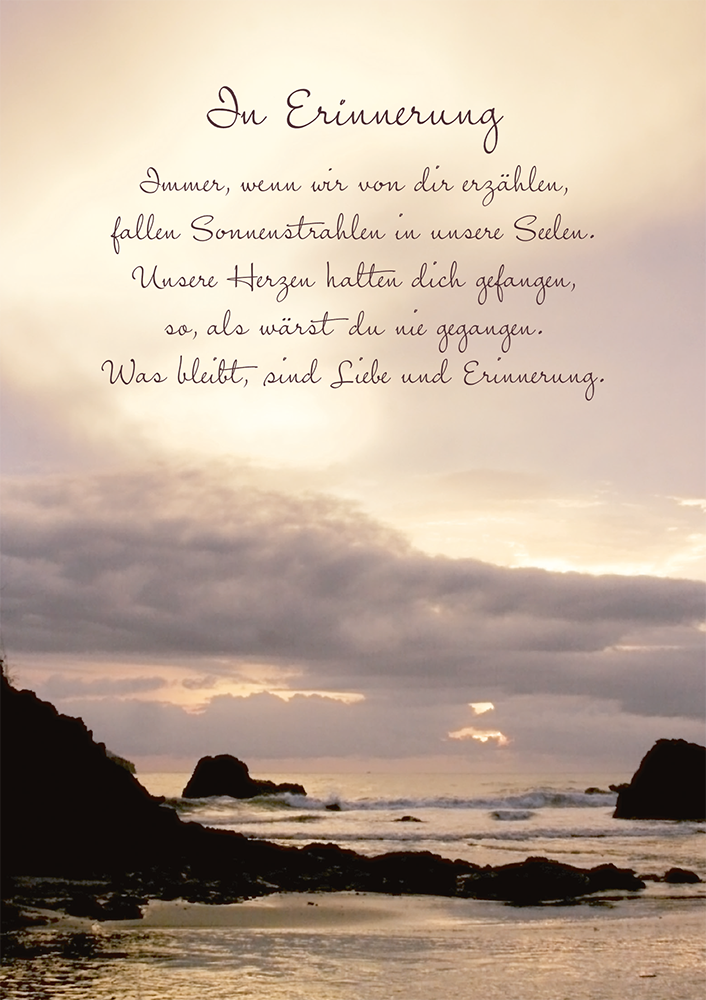 In Erinnerung
Immer, wenn wir von dir erzählen,
fallen Sonnenstrahlen in unsere Seelen.
Unsere Herzen halten dich gefangen,
so, als wärst du nie gegangen.
Was bleibt, sind Liebe und Erinnerung.